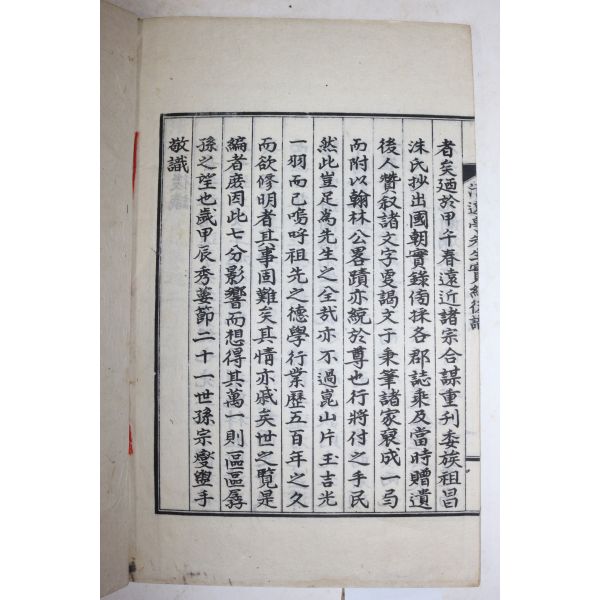 者矣迺於甲午春遠近諸宗合謀重刊委族祖昌
洙氏抄出國朝實錄傍採各郡誌乘及當時贈遺
後人贊叙諸文字憂謁文于秉筆諸家裒成一弓
而附以翰林公畧蹟亦統於尊也行將付之手民
然此豈足爲先生之全哉亦不過崑山片玉吉光
一羽而已嗚呼祖先之德學行業歷五百年之久
而欲修明者其事固難矣其情亦戚矣世之覽是
編者庶因此七分影響而想得其萬一則區區孱
孫之望也歲甲辰秀葽節二十一世孫宗燮盥手
敬識